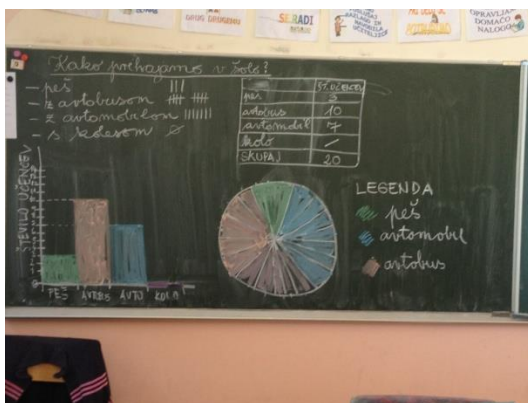 DRUG DRUGEMU
SE RADI
OPRAVLJA
DOMAČO
NALOGO
Kako prihajamo v šolo?
- peš |||
- z avtobusom
- z avtomobilom |||||||
- s kolesom ∅
ŠT. UČENCEV
peš 3
avtobus 10
avtomobil 7
kolo /
SKUPAJ 20
ŠTEVILO UČENCEV
PEŠ AVTOBUS AVTO KOLO
LEGENDA
peš
avtomobil
avtobus